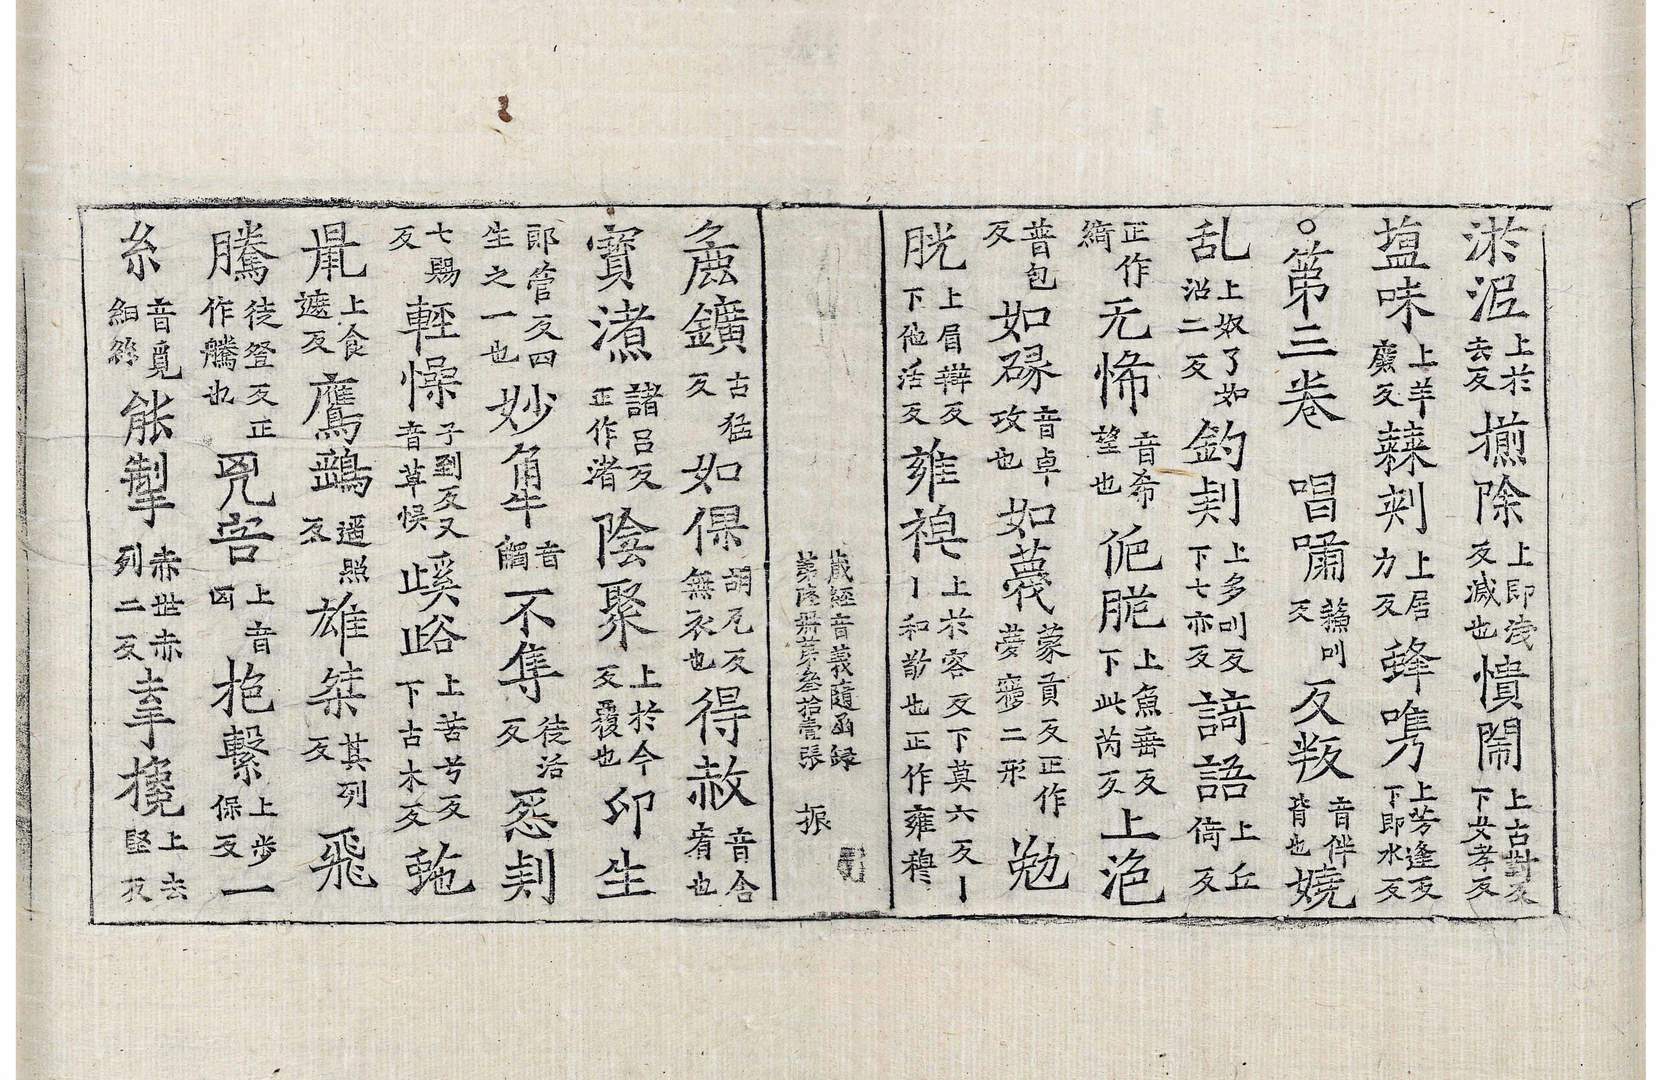 淤泥上於去反㨽除上即浅反減也憒閙上古對反下女孝反
塩味上羊廉反蕀刾上居力反蜂嶲上芳逢反下即水反
○第三卷　唱嘯蘓叫反反叛音伴背也嬈
乱上奴了如沼二反釣刾上多叫反下七亦反諳語上丘倚反
正作綺无悕音希望也㢮脆上魚毀反下此芮反上𣵀
普包反如䂪音卓攻也如薎蒙貢反正作夢寱二形勉
脱上眉辯反下他活反雍䅼上於容反下莫六反丨丨和敬也正作雍穆
藏經音義隨函録第陸冊第叁拾壹張　振
麁鑛古猛反如倮胡瓦反無衣也得赦音舍宥也
寳渚諸吕反正作渚陰聚上於今反覆也卵生
郎管反四生之一也妙𧢲音觸不奪徒活反惡刾
七賜反輕懆子到反又音草悞蹊谷上苦兮反下古木反虵
鼡上食遮反鷹鷂遥照反雄桀其列反飛
騰徒登反正作騰也㓙咎上音凶抱繫上步保反一
糸音覓細絲䏻掣赤世赤列二反牽挽上去堅反